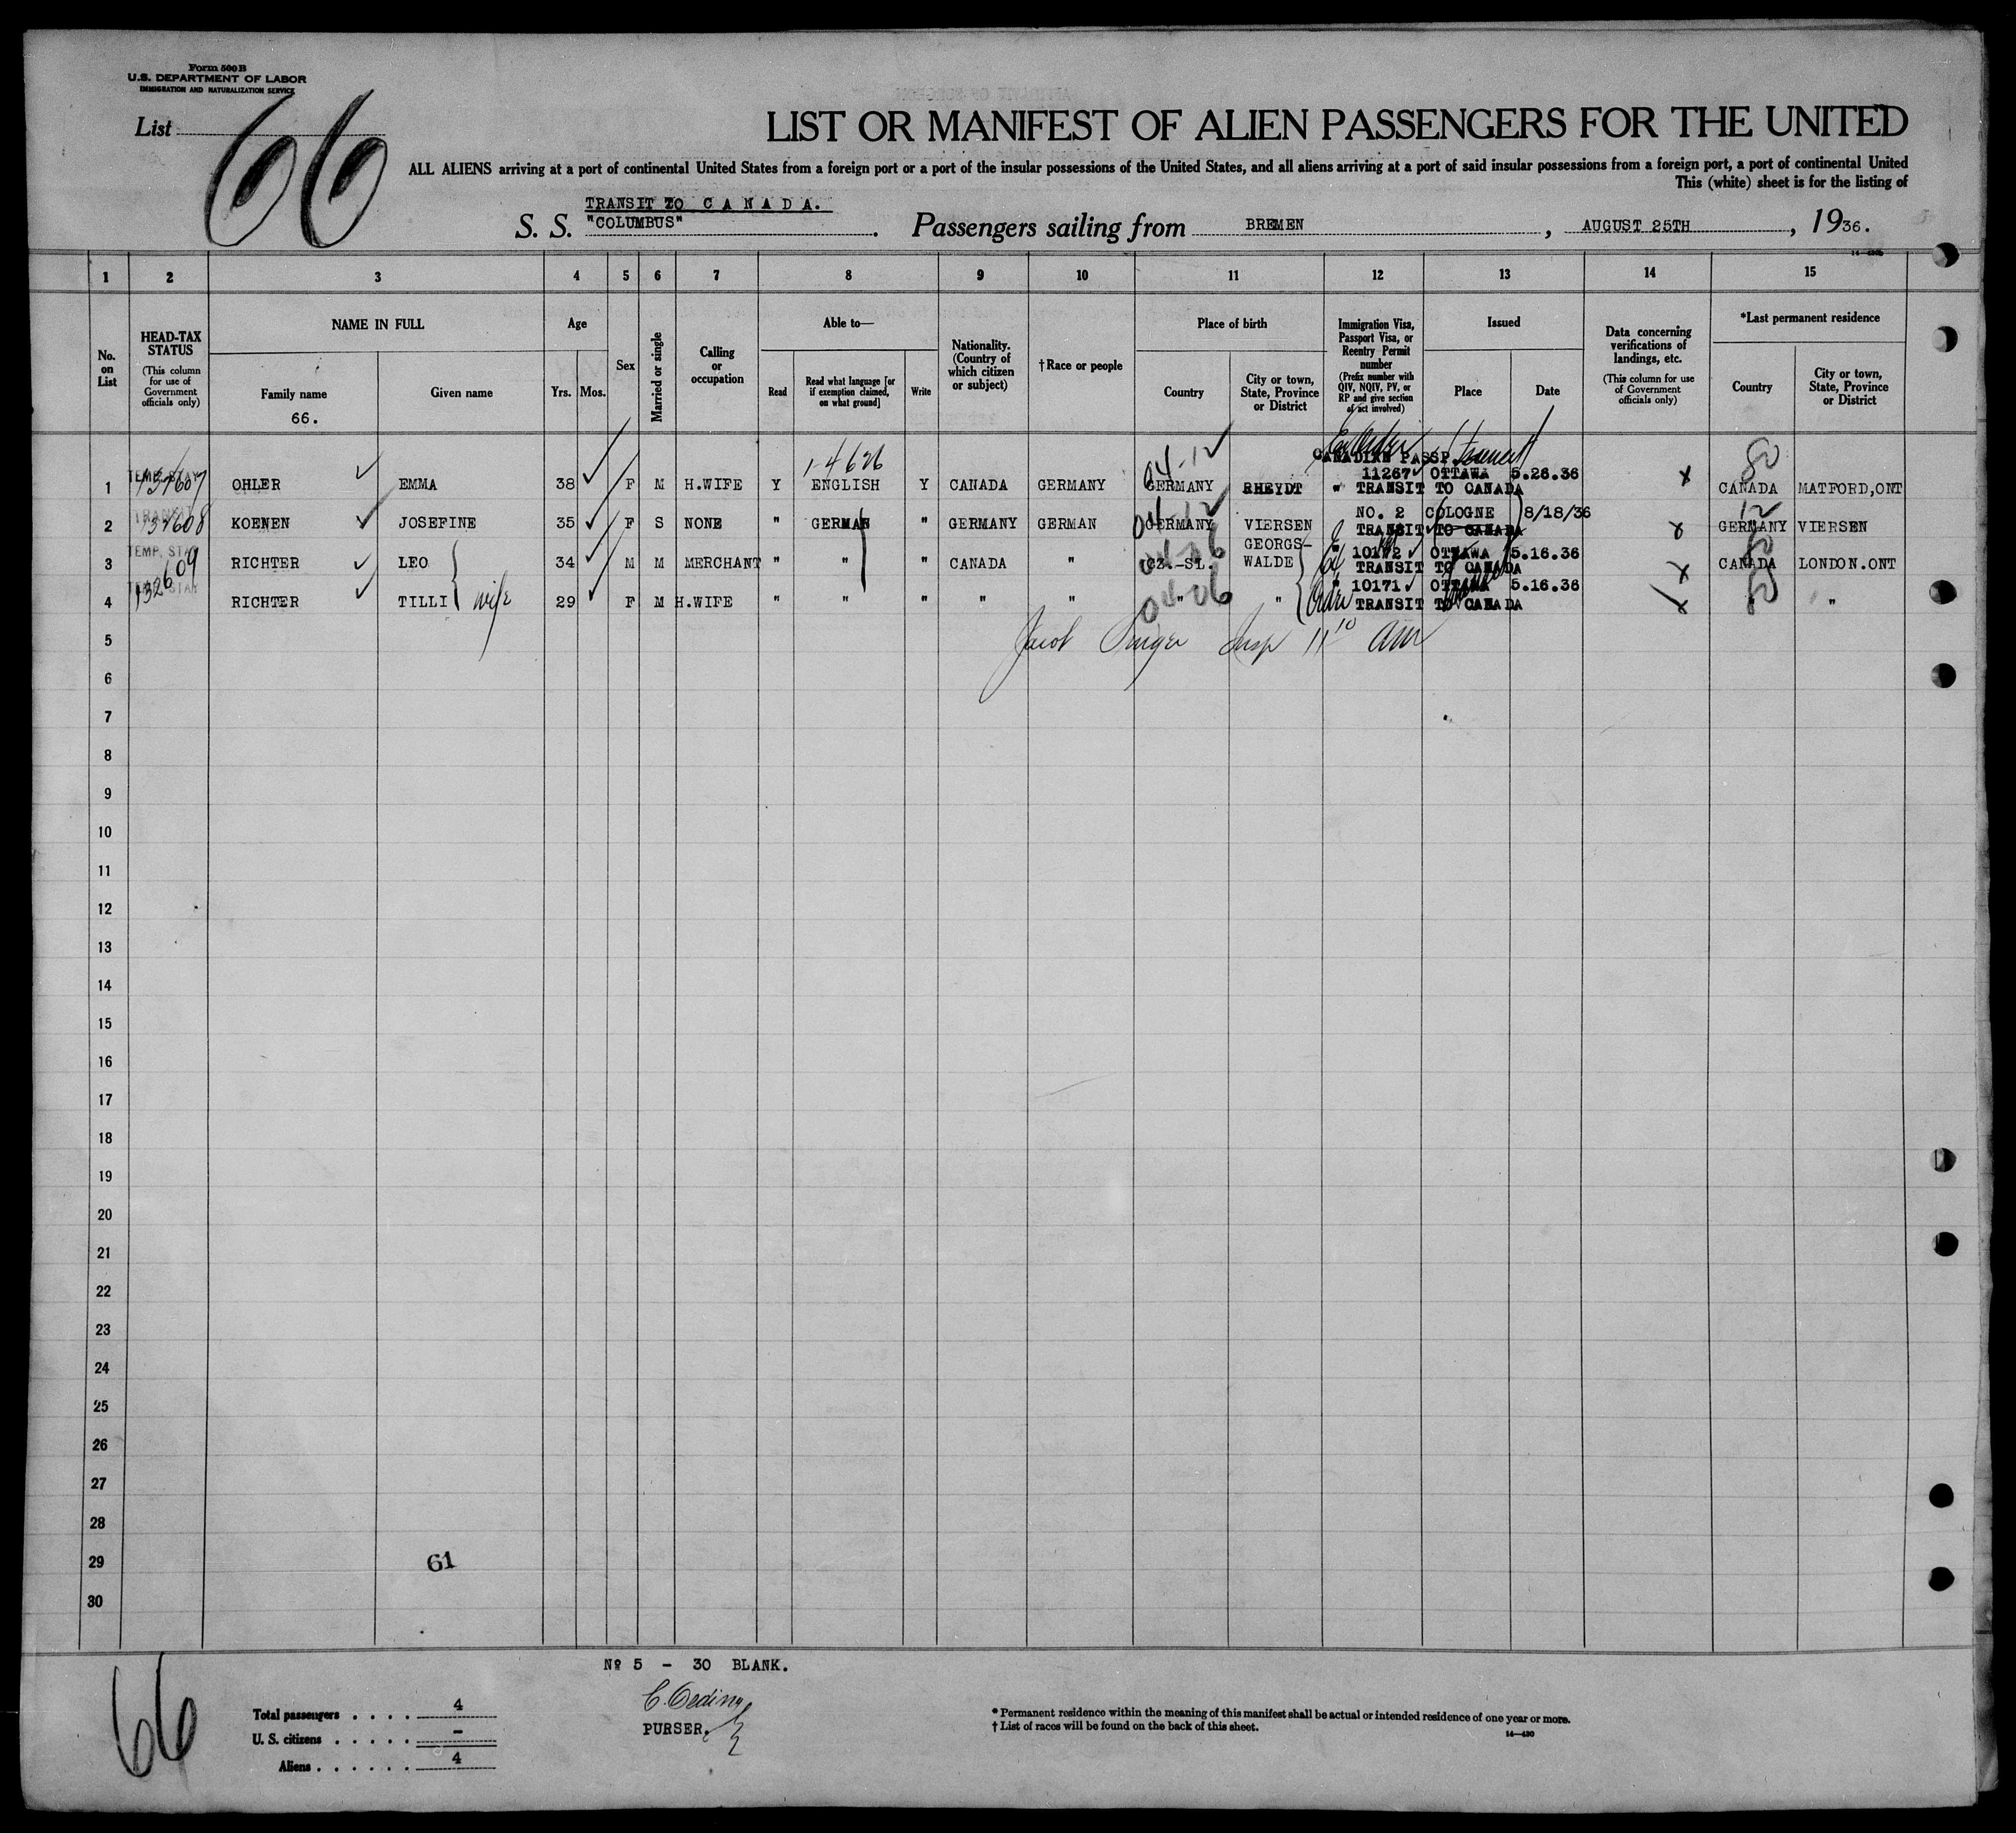 Form 500 B
U.S. DEPARTMENT OF LABOR
IMMIGRATION AND NATURALIZATION SERVICE
List 66
LIST OR MANIFEST OF ALIEN PASSENGERS FOR THE UNITED
ALL ALIENS arriving at a port of continental United States from a foreign port or a port of the insular possessions of the United States, and all aliens arriving at a port of said insular possessions from a foreign port, a port of continental United
This (white) sheet is for the listing of
TRANSIT TO CANADA.
S. S. "COLUMBUS". Passengers sailing from BREMEN, AUGUST 25TH, 1936.
14—430b
1 2 3 4 5 6 7 8 9 10 11 12 13 14 15
No. on List
HEAD-TAX STATUS
(This column for use of Government officials only)
NAME IN FULL
Family name
66.
Given name
Age
Yrs. Mos.
Sex
Married or single
Calling or occupation
Able to—
Read
Read what language [or if exemption claimed, on what ground]
Write
Nationality. (Country of which citizen or subject)
†Race or people
Place of birth
Country
City or town, State, Province or District
Immigration Visa, Passport Visa, or Reentry Permit number
(Prefix number with QIV, NQIV, PV, or RP and give section of act involved)
Issued
Place
Date
Data concerning verifications of landings, etc.
(This column for use of Government officials only)
*Last permanent residence
Country
City or town, State, Province or District
1-4626
04-12
CANADIAN PASSP.
11267 OTTAWA 5.26.36
80
1 TEMP. STAY 132607 OHLER EMMA 38 F M H.WIFE Y ENGLISH Y CANADA GERMANY GERMANY RHEYDT " TRANSIT TO CANADA x CANADA MATFORD,ONT
TRANSIT 04-12 NO. 2 COLOGNE 8/18/36 12
2 132608 KOENEN JOSEFINE 35 F S NONE " GERMAN " GERMANY GERMAN GERMANY VIERSEN TRANSIT TO CANADA x GERMANY VIERSEN
TEMP. STAY 04-06 GEORGS- " 10172 OTTAWA 5.16.36 80
3 132609 RICHTER LEO 34 M M MERCHANT " " " CANADA " CZ.-SL. WALDE TRANSIT TO CANADA x CANADA LONDON.ONT
" 10171 OTTAWA 5.16.36 80
4 RICHTER TILLI wife 29 F M H.WIFE " " " " " 04-06 " " TRANSIT TO CANADA x " "
5 Jacob Insp 11 10 am
6
7
8
9
10
11
12
13
14
15
16
17
18
19
20
21
22
23
24
25
26
27
28
29 61
30
66
Nº 5 - 30 BLANK.
C. Oeding
PURSER.
Total passengers . . . . 4
U. S. citizens . . . . . -
Aliens . . . . . . 4
* Permanent residence within the meaning of this manifest shall be actual or intended residence of one year or more.
† List of races will be found on the back of this sheet.
14—430